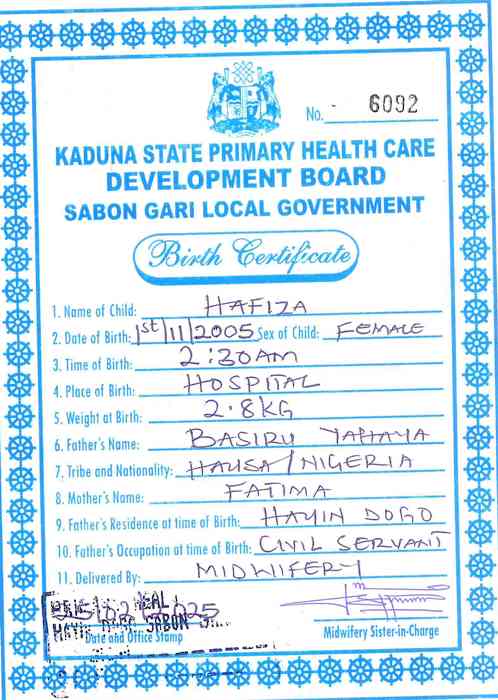 No. - 6092
KADUNA STATE PRIMARY HEALTH CARE
DEVELOPMENT BOARD
SABON GARI LOCAL GOVERNMENT
Birth Certificate
1. Name of Child: HAFIZA
2. Date of Birth: 1st/11/2005 Sex of Child: FEMALE
3. Time of Birth: 2:30AM
4. Place of Birth: HOSPITAL
5. Weight at Birth: 2.8KG
6. Father's Name: BASIRU YAHAYA
7. Tribe and Nationality: HAUSA/NIGERIA
8. Mother's Name: FATIMA
9. Father's Residence at time of Birth: HAYIN DOGO
10. Father's Occupation at time of Birth: CIVIL SERVANT
11. Delivered By: MIDWIFERY
SABON
Date and Office Stamp
Midwifery Sister-in-Charge